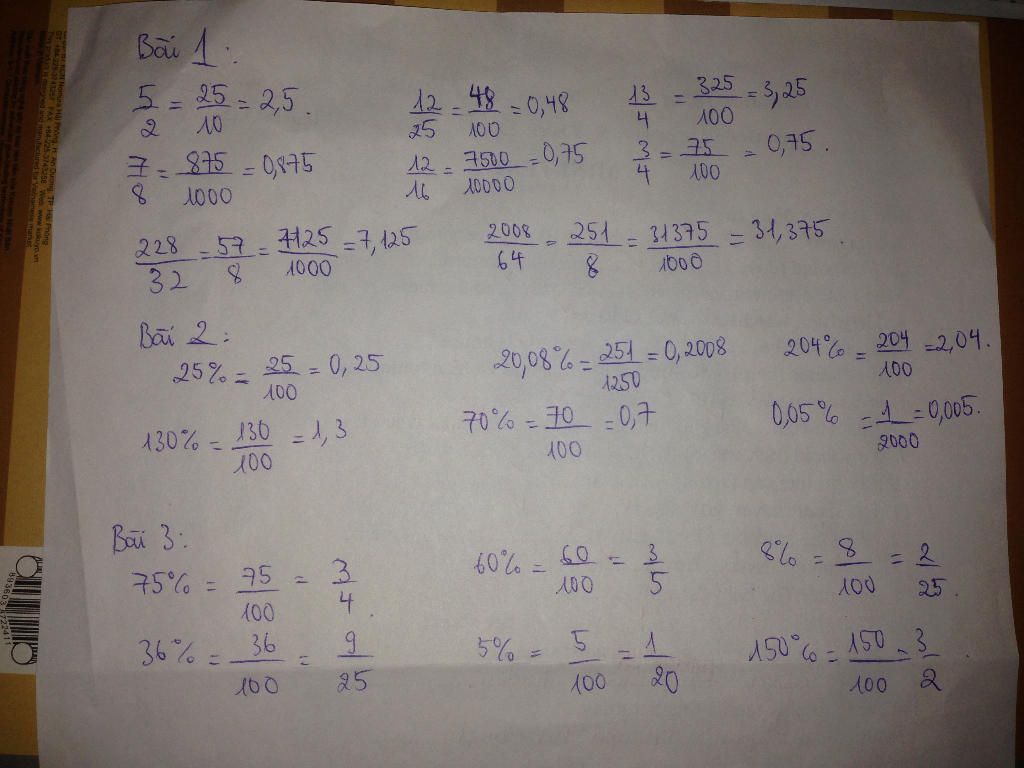 Bài 1:
5/2 = 25/10 = 2,5. 12/25 = 48/100 = 0,48 13/4 = 325/100 = 3,25
7/8 = 875/1000 = 0,875 12/16 = 7500/10000 = 0,75 3/4 = 75/100 = 0,75.
228/32 = 57/8 = 7125/1000 = 7,125 2008/64 = 251/8 = 31375/1000 = 31,375.
Bài 2:
25% = 25/100 = 0,25 20,08% = 251/1250 = 0,2008 204% = 204/100 = 2,04.
130% = 130/100 = 1,3 70% = 70/100 = 0,7 0,05% = 1/2000 = 0,005.
Bài 3:
75% = 75/100 = 3/4. 60% = 60/100 = 3/5 8% = 8/100 = 2/25.
36% = 36/100 = 9/25 5% = 5/100 = 1/20 150% = 150/100 = 3/2.